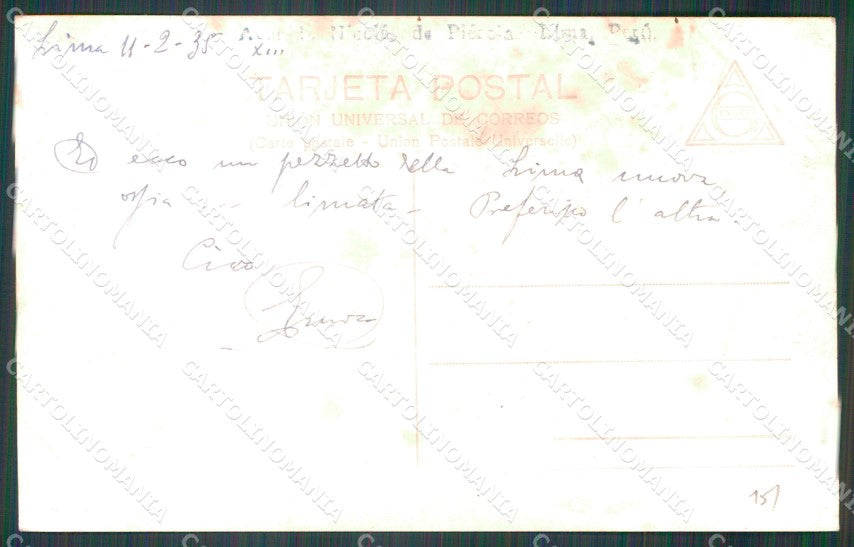 Lima 11-2-35 Nicolás de Piérola Lima, Perú.
XIII
TARJETA POSTAL
UNION UNIVERSAL DE CORREOS
(Carte Postale - Union Postale Universelle)
Ed ecco un pezzetto della Lima nuova
ossia -- limata - Preferisco l'altra.
Ciao
15/
CARTOLINOMANIA